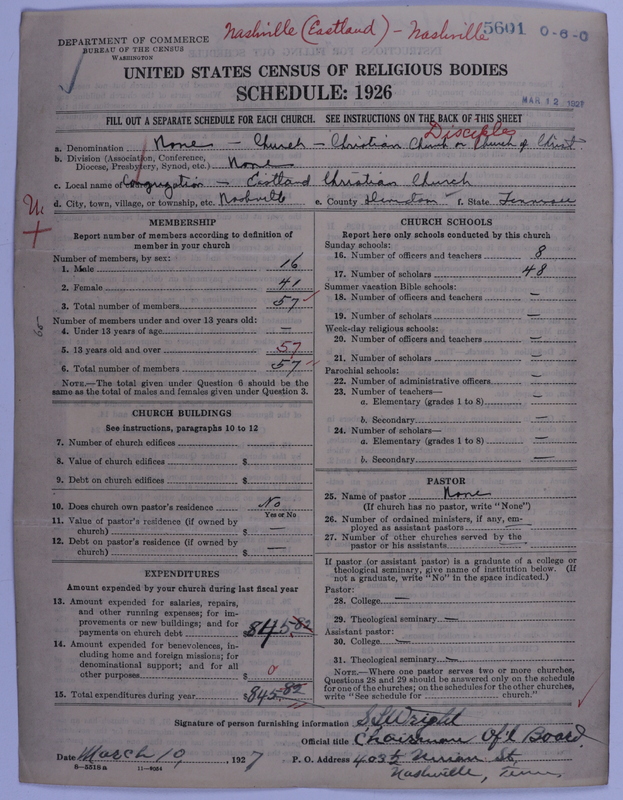 Nashville (Eastland) - Nashville 5601 0-6-0
DEPARTMENT OF COMMERCE
BUREAU OF THE CENSUS
WASHINGTON
UNITED STATES CENSUS OF RELIGIOUS BODIES
SCHEDULE: 1926
MAR 12 1927
FILL OUT A SEPARATE SCHEDULE FOR EACH CHURCH. SEE INSTRUCTIONS ON THE BACK OF THIS SHEET
Disciples
a. Denomination None - Church - Christian Church or Church of Christ.
b. Division (Association, Conference,
Diocese, Presbytery, Synod, etc.) None
c. Local name of Congregation - Eastland Christian Church
d. City, town, village, or township, etc. Nashville e. County f. State Tennessee
MEMBERSHIP
Report number of members according to definition of
member in your church
Number of members, by sex:
1. Male 16
2. Female 41
3. Total number of members 57
Number of members under and over 13 years old:
4. Under 13 years of age —
5. 13 years old and over 57
6. Total number of members 57
NOTE.—The total given under Question 6 should be
same as the total of males and females given under Question 3.
CHURCH BUILDINGS
See instructions, paragraphs 10 to 12
7. Number of church edifices
8. Value of church edifices $
9. Debt on church edifices $
10. Does church own pastor's residence No
Yes or No
11. Value of pastor's residence (if owned by
church) $ —
12. Debt on pastor's residence (if owned by
church) $ —
EXPENDITURES
Amount expended by your church during last fiscal year
13. Amount expended for salaries, repairs,
and other running expenses; for im-
provements or new buildings; and for
payments on church debt $ 845.82
14. Amount expended for benevolences, in-
cluding home and foreign missions; for
denominational support; and for all
other purposes $ 0
15. Total expenditures during year $845.82
CHURCH SCHOOLS
Report here only schools conducted by this church
Sunday schools:
16. Number of officers and teachers 8
17. Number of scholars 48
Summer vacation Bible schools:
18. Number of officers and teachers —
19. Number of scholars —
Week-day religious schools:
20. Number of officers and teachers —
21. Number of scholars —
Parochial schools:
22. Number of administrative officers —
23. Number of teachers—
a. Elementary (grades 1 to 8) —
b. Secondary —
24. Number of scholars—
a. Elementary (grades 1 to 8) —
b. Secondary —
PASTOR
25. Name of pastor None
(If church has no pastor, write "None")
26. Number of ordained ministers, if any, em-
ployed as assistant pastors —
27. Number of other churches served by the
pastor or his assistants
If pastor (or assistant pastor) is a graduate of a college or
theological seminary, give name of institution below. (If
not a graduate, write "No" in the space indicated.)
Pastor:
28. College —
29. Theological seminary —
Assistant pastor:
30. College —
31. Theological seminary —
NOTE.—Where one pastor serves two or more churches,
Questions 28 and 29 should be answered only on the schedule
for one of the churches; on the schedules for the other churches,
write "See schedule for church."
Signature of person furnishing information Wright
Official title Chairman Of'l Board
Date March 10, 1927 P. O. Address St.
8—5518a 11—9054 Nashville, Tenn.